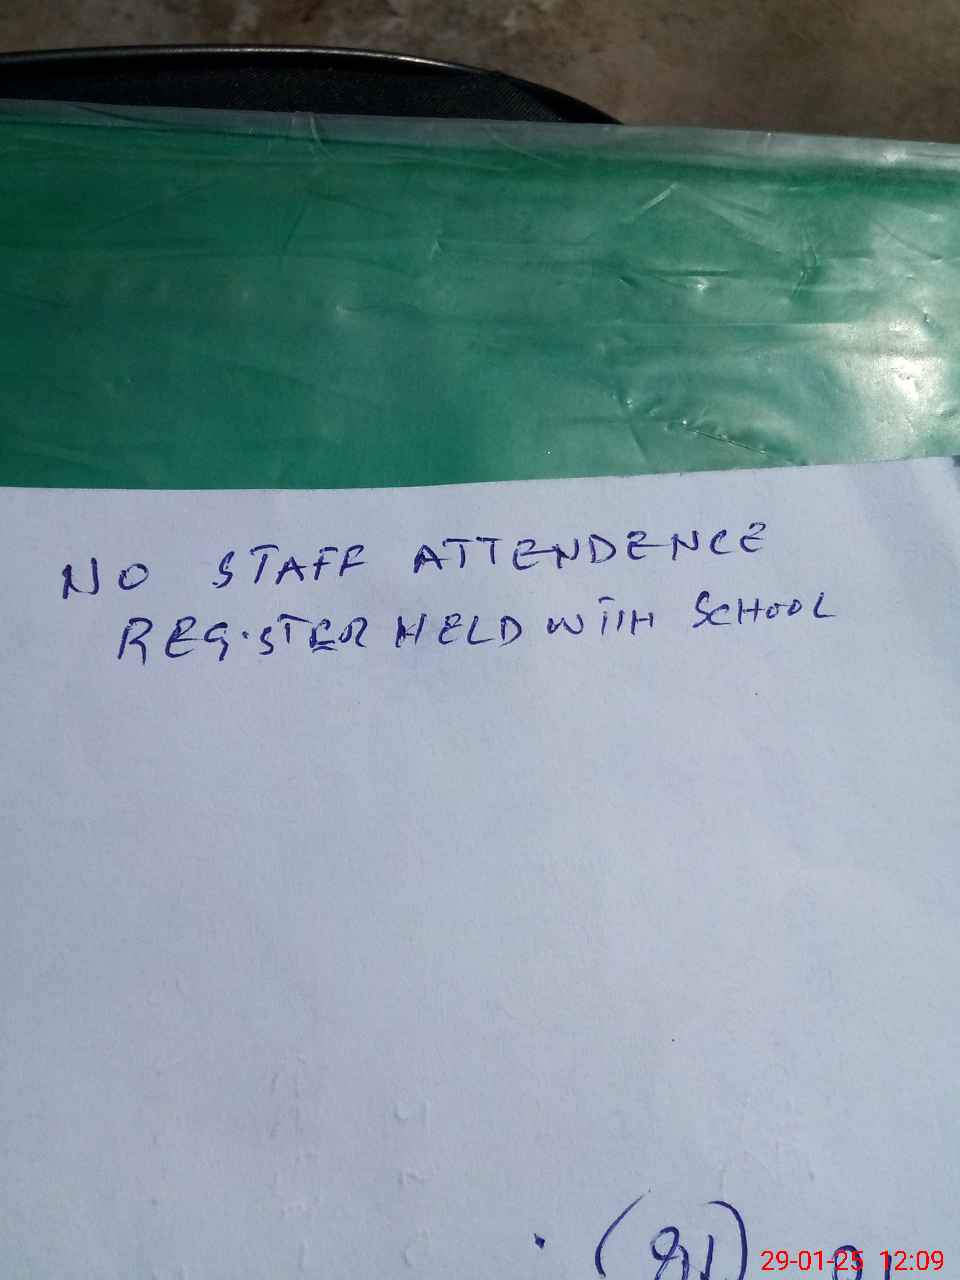 NO STAFF ATTENDENCE
REGISTER HELD WITH SCHOOL
29-01-25 12:09